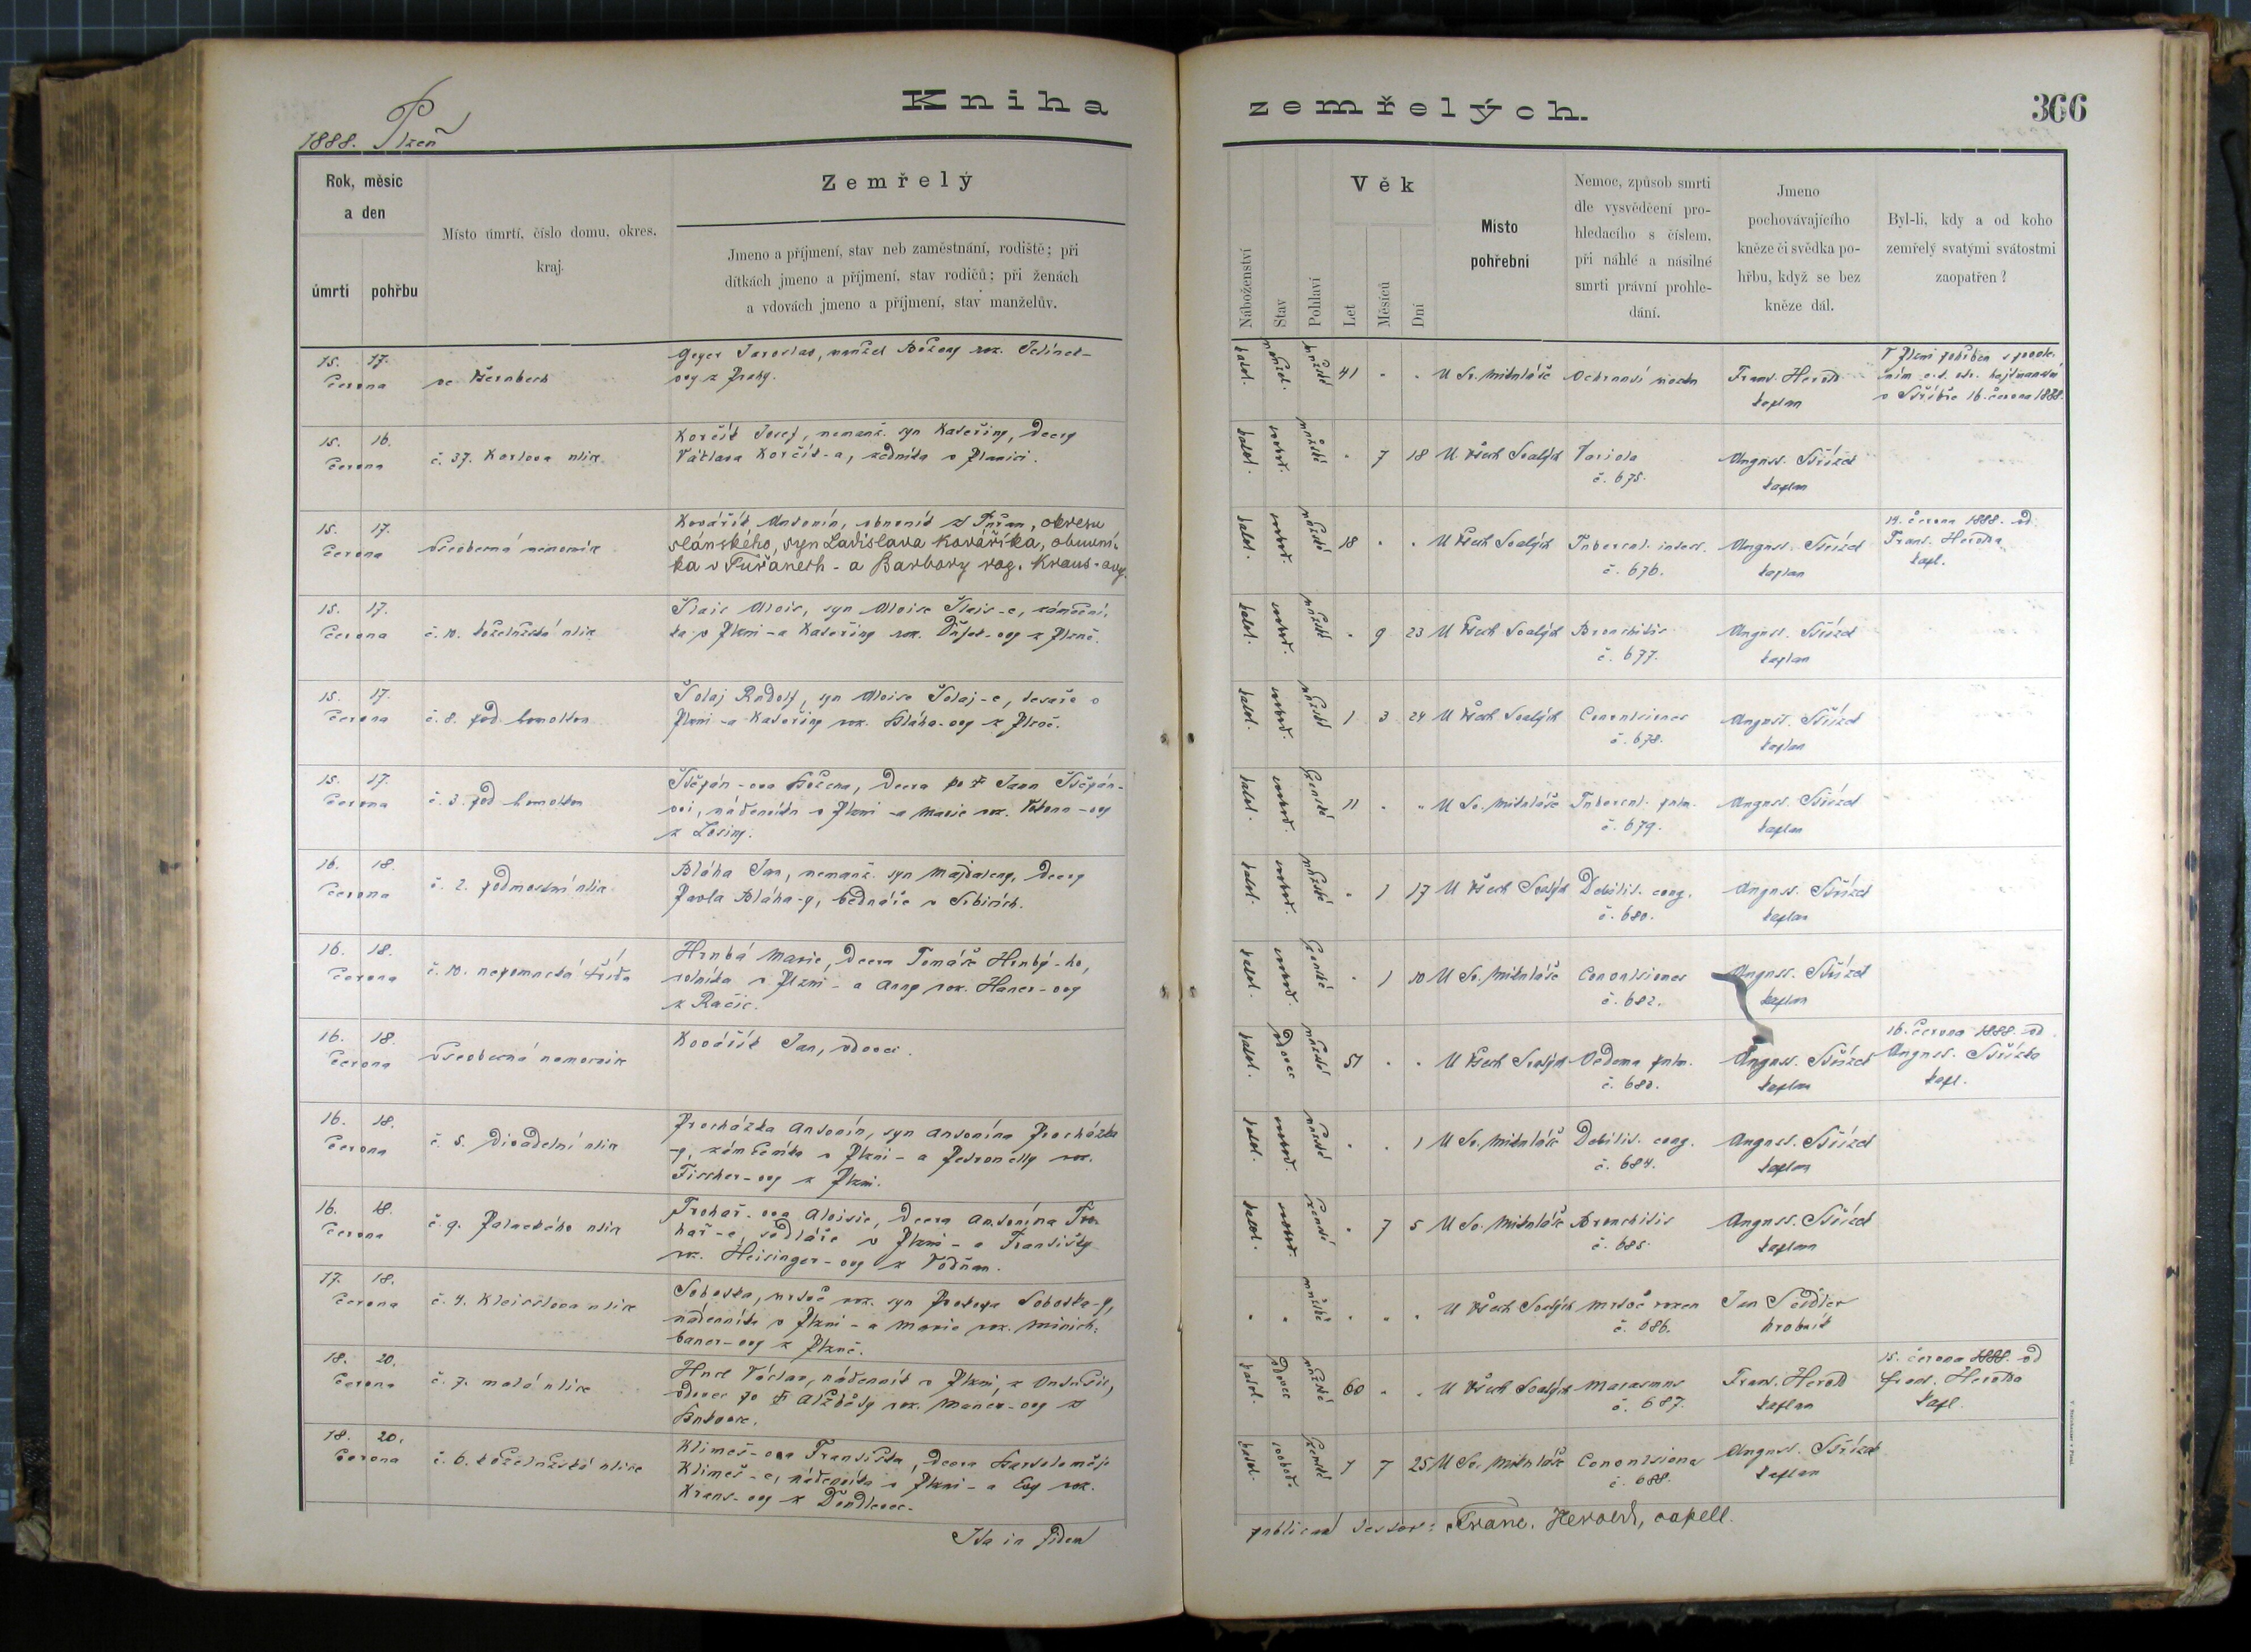 Kniha
zemřelých.
366
1888. Plzeň
Rok, měsíc
a den
úmrtí
pohřbu
Místo úmrtí, číslo domu, okres,
kraj.
Zemřelý
Jmeno a příjmení, stav neb zaměstnání, rodiště; při
dítkách jmeno a příjmení, stav rodičů; při ženách
a vdovách jmeno a příjmení, stav manželův.
Náboženství
Stav
Pohlaví
Věk
Let
Měsíců
Dní
Místo
pohřební
Nemoc, způsob smrti
dle vysvědčení pro-
hledacího s číslem,
při náhlé a násilné
smrti právní prohle-
dání.
Jmeno
pochovávajícího
kněze či svědka po-
hřbu, když se bez
kněze dál.
Byl-li, kdy a od koho
zemřelý svatými svátostmi
zaopatřen?
15. 17.
června
Geyer Jaroslav, manžel Boženy roz.
ovy z Prahy.
katol. manžel. mužské 41 U Sv. Mikuláše
Frant. Herold
kaplan
16. června 1888.
15. 16.
června
č. 37. Karlova ulice
Korčík Josef, nemanž. syn Kateřiny, dcery
Václava Korčík-a, zedníka v Plánici.
katol. svobod. mužské 7 18 U Všech Svatých Variola
č. 675.
August. Střízek
kaplan
15. 17.
června
všeobecná nemocnice
Kovářík Antonín, obuvník z Tuřan, okresu
slánského, syn Ladislava Kováříka, obuvní-
ka v Tuřanech - a Barbory roz. Kraus-ovy.
katol. svobod. mužské 18 U Všech Svatých Tubercul. intest.
č. 676.
August. Střízek
kaplan
14. června 1888. od
Frant. Herolda
kapl.
15. 17.
června
č. 10. koželužská ulice
Šlais Alois, syn Aloise Šlais-e, zámeční-
ka v Plzni - a Kateřiny roz.
katol. svobod. mužské 9 23 U Všech Svatých Bronchitis
č. 677.
August. Střízek
kaplan
15. 17.
června
č. 8. pod homolkou
Šolaj Rudolf, syn Aloise Šolaj-e, tesaře v
Plzni - a Kateřiny roz. Bláha-ovy z Plzně.
katol. svobod. mužské 1 3 24 U Všech Svatých Convulsiones
č. 678.
August. Střízek
kaplan
15. 17.
června
č. 3. pod homolkou
Štěpán-ova Božena, dcera po † Janu Štěpán-
ovi, nádeníku v Plzni - a Marie roz.
z Losiny.
katol. svobod. ženské 11 U Sv. Mikuláše Tubercul. pulm.
č. 679.
August. Střízek
kaplan
16. 18.
června
č. 2. podmostní ulice
Bláha Jan, nemanž. syn Majdaleny, dcery
Pavla Bláha-y, bednáře v
katol. svobod. mužské 1 17 U Všech Svatých Debilit. cong.
č. 680.
August. Střízek
kaplan
16. 18.
června
č. 10. nepomucká třída
Hrubá Marie, dcera Tomáše Hrubý-ho,
rolníka v Plzni - a Anny roz. Haner-ovy
z Račic.
katol. svobod. ženské 1 10 U Sv. Mikuláše Convulsiones
č. 682.
August. Střízek
kaplan
16. 18.
června
všeobecná nemocnice
Kovářík Jan, vdovec.
katol. vdovec mužské 51 U Všech Svatých Oedema pulm.
č. 683.
August. Střízek
kaplan
16. června 1888. od
August. Střízka
kapl.
16. 18.
června
č. 5. Divadelní ulice
Procházka Antonín, syn Antonína Procházka
-y, zámečníka v Plzni - a Petronelly roz.
Fischer-ovy z Plzni.
katol. svobod. mužské 1 U Sv. Mikuláše Debilit. cong.
č. 684.
August. Střízek
kaplan
16. 18.
června
č. 9. Palackého ulice
Trohař-ova Aloisie, dcera Antonína Tro-
hař-e, sedláře v Plzni - a Františky
roz. Heisinger-ovy z Vodňan.
katol. svobod. ženské 7 5 U Sv. Mikuláše Bronchitis
č. 685.
August. Střízek
kaplan
17. 18.
června
č. 4. Kleisslova ulice
Sobotka, mrtvě roz. syn Prokopa Sobotka-y,
nádeníka v Plzni - a Marie roz. Minich-
bauer-ovy z Plzně.
mužské U Všech Svatých mrtvě rozen
č. 686.
Jan Seidler
hrobník
18. 20.
června
č. 7. malá ulice
Václav, nádeník v Plzni, z
vdovec po † Alžběty roz. ovy z
katol. vdovec mužské 60 U Všech Svatých Marasmus
č. 687.
Frant. Herold
kaplan
15. června 1888. od
Frant. Herolda
kapl.
18. 20.
června
č. 6. koželužská ulice
Klimeš-ova Františka, dcera Bartoloměje
Klimeš-e, nádeníka v Plzni - a Evy roz.
Kraus-ovy z
katol. svobod. ženské 7 25 U Sv. Mikuláše Convulsiones
č. 688.
August. Střízek
kaplan
Ita in fidem
publicam testor: Franc. Herold, capell.